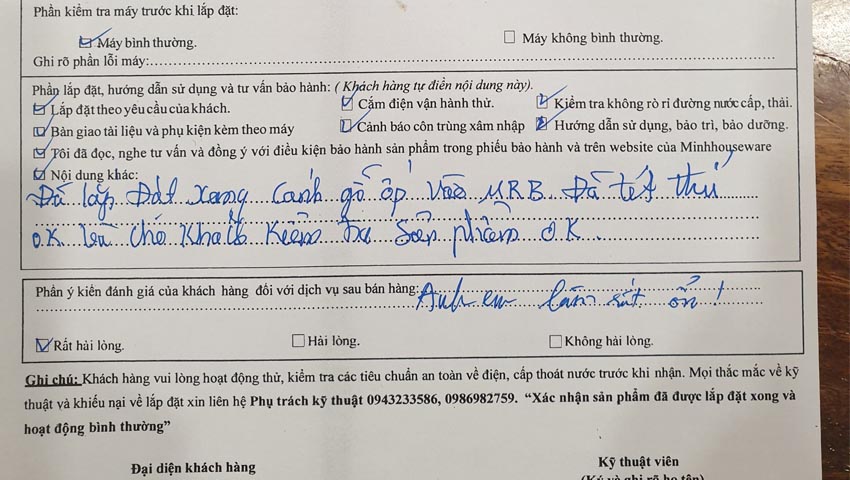 Phần kiểm tra máy trước khi lắp đặt:
Máy bình thường. Máy không bình thường.
Ghi rõ phần lỗi máy:
Phần lắp đặt, hướng dẫn sử dụng và tư vấn bảo hành: ( Khách hàng tự điền nội dung này).
Lắp đặt theo yêu cầu của khách. Cắm điện vận hành thử. Kiểm tra không rò rỉ đường nước cấp, thải.
Bàn giao tài liệu và phụ kiện kèm theo máy Cảnh báo côn trùng xâm nhập Hướng dẫn sử dụng, bảo trì, bảo dưỡng.
Tôi đã đọc, nghe tư vấn và đồng ý với điều kiện bảo hành sản phẩm trong phiếu bảo hành và trên website của Minhhouseware
Nội dung khác:
Đã lắp Đặt xong cánh gỗ ốp vào MRB Đã tét thử
O.K cho Khách Kiểm tra Sản phẩm O.K.
Phần ý kiến đánh giá của khách hàng đối với dịch vụ sau bán hàng: Anh em làm rất ổn!
Rất hải lòng. Hải lòng. Không hải lòng.
Ghi chú: Khách hàng vui lòng hoạt động thử, kiểm tra các tiêu chuẩn an toàn về điện, cấp thoát nước trước khi nhận. Mọi thắc mắc về kỹ
thuật và khiếu nại về lắp đặt xin liên hệ Phụ trách kỹ thuật 0943233586, 0986982759. “Xác nhận sản phẩm đã được lắp đặt xong và
hoạt động bình thường”
Đại diện khách hàng Kỹ thuật viên
(Ký và ghi rõ họ tên)